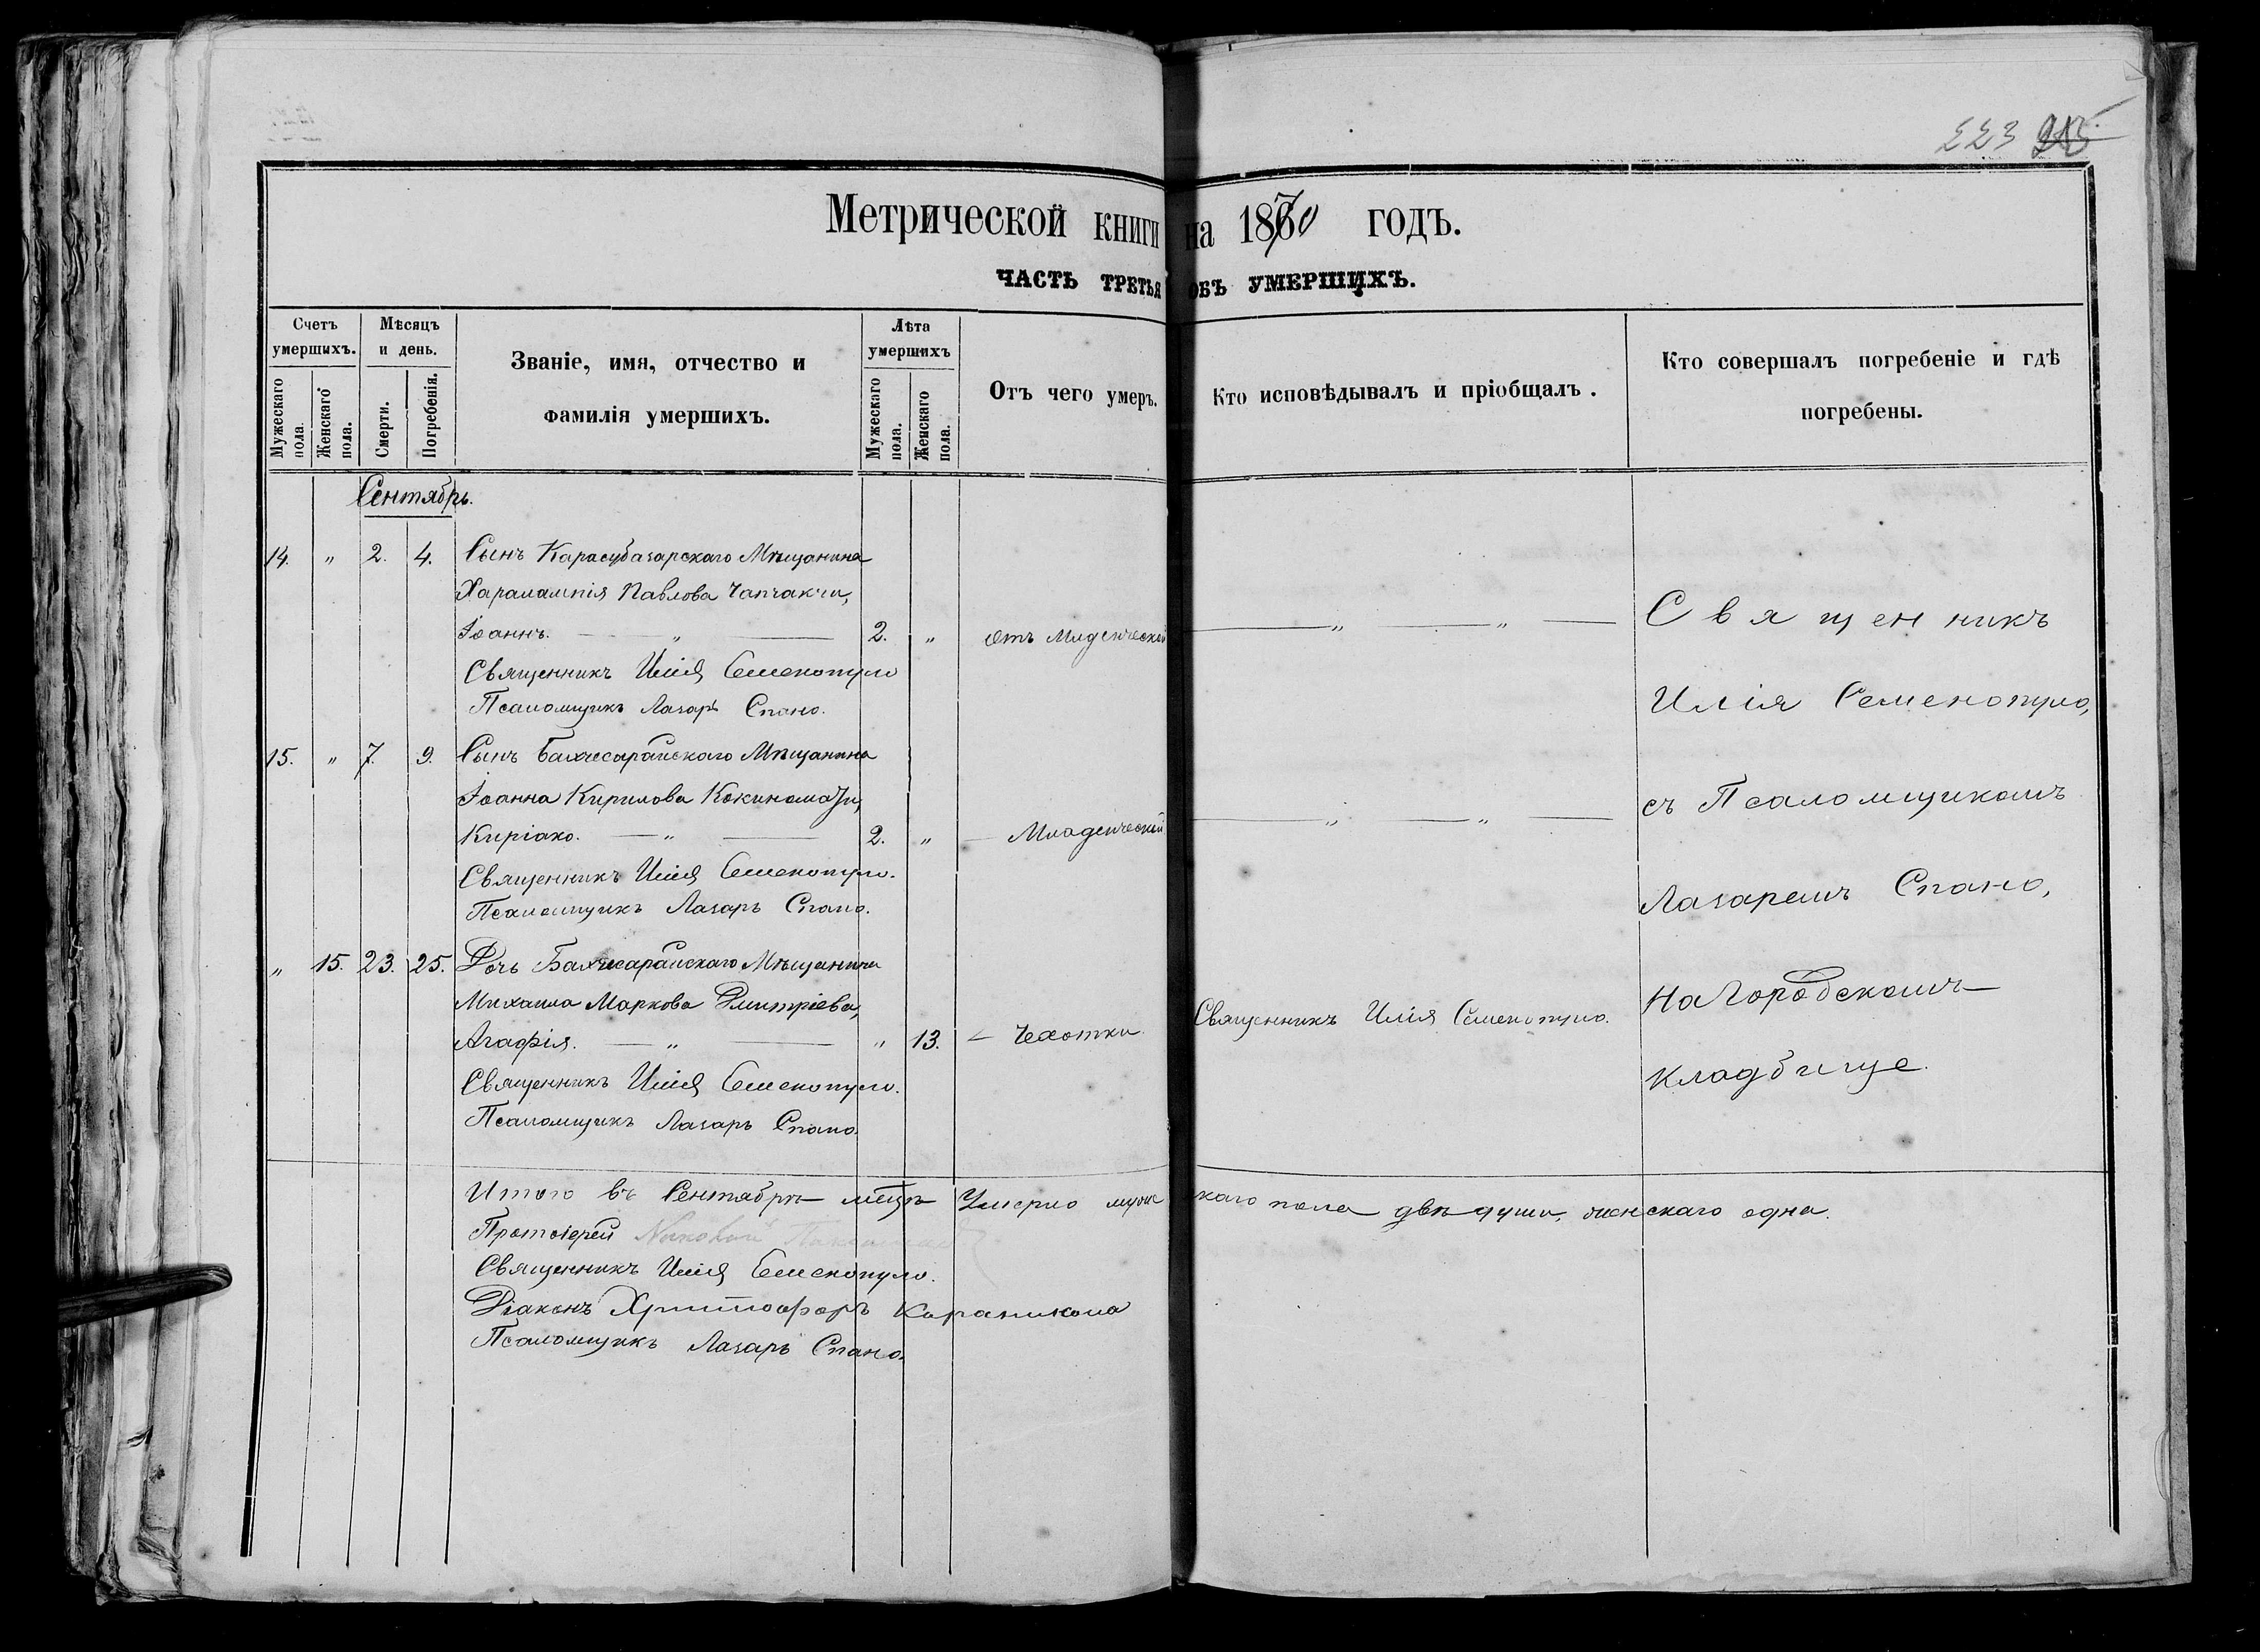 223
Метрической книги на 1870 годъ.
ЧАСТЬ ТРЕТЬЯ ОБЪ УМЕРШИХЪ.
Счетъ умершихъ.
Мѣсяцъ и день.
Званіе, имя, отчество и фамилія умершихъ.
Лѣта умершихъ
Отъ чего умеръ.
Кто исповѣдывалъ и пріобщалъ.
Кто совершалъ погребеніе и гдѣ погребены.
Мужескаго пола.
Женскаго пола.
Смерти.
Погребенія.
Мужескаго пола.
Женскаго пола.
Сентябрь.
14. " 2. 4. Сынъ Карасубазарскаго Мѣщанина
Харалампія Павлова Чапчакчи,
Іоаннъ. — " — 2. " отъ Младенческой — " — " —
Священникъ Илія Семенопуло
Псаломщикъ Лазарь Спано.
15. " 7. 9. Сынъ Бахчисарайскаго Мѣщанина
Іоанна Кирилова
Киріако. — " — 2. " — Младенческой — " — " —
Священникъ Илія Семенопуло.
Псаломщикъ Лазарь Спано.
" 15. 23. 25. Дочь Бахчисарайскаго Мѣщанина
Михаила Маркова Дмитріева,
Агафія. — " — " 13. — Чехотки. Священникъ Илія Семенопуло.
Священникъ Илія Семенопуло.
Псаломщикъ Лазарь Спано.
Священникъ
Илія Семенопуло,
съ Псаломщикомъ
Лазаремъ Спано,
На Городскомъ
кладбище.
Итого въ Сентябрѣ мцѣ Умерло мужескаго пола двѣ души, женскаго одна.
Протоіерей
Священникъ Илія Семенопуло.
Діаконъ Христофоръ
Псаломщикъ Лазарь Спано.